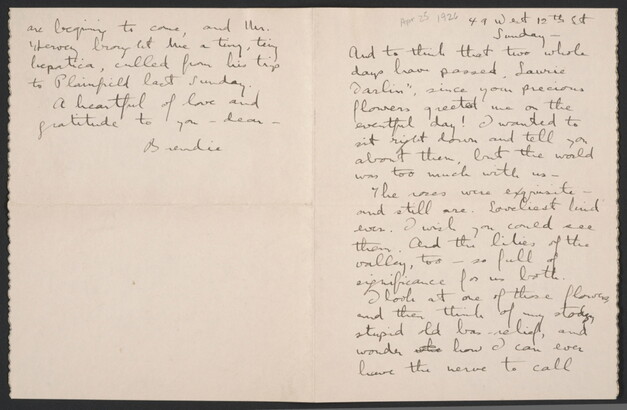 Apr 25 1926
49 West 12th St
Sunday —
And to think that two whole
days have passed, Lawrie
Darlin', since your precious
flowers greeted me on the
eventful day! I wanted to
sit right down and tell you
about them, but the world
was too much with us —
The roses were exquisite —
and still are. Loveliest kind
ever. I wish you could see
them. And the lilies of the
valley, too — so full of
significance for us both.
I look at one of those flowers
and then think of my stodgy
stupid old bas-relief, and
wonder how I can ever
have the nerve to call
are beginning to come, and Mr.
Hervey brought me a tiny, tiny
hepatica, culled from his trip
to Plainfield last Sunday.
A heartful of love and
gratitude to you — dear —
Brendie